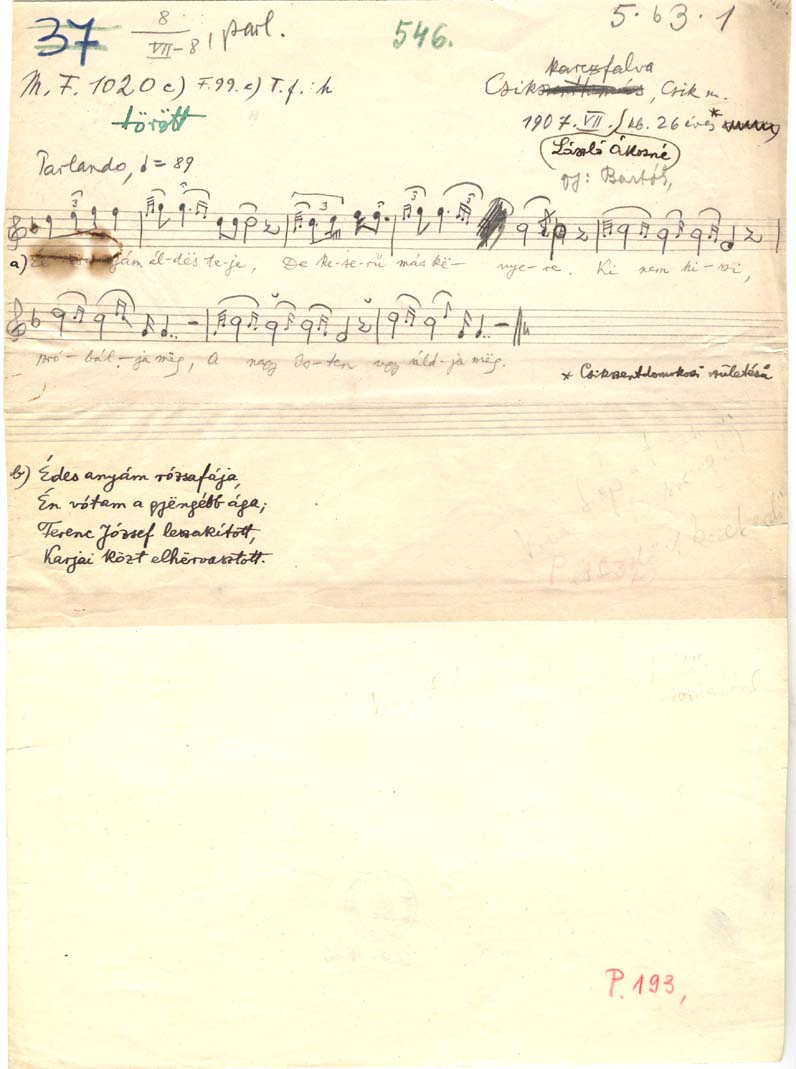 37 8/VII-8, parl. 546. 5.63.1
M. F. 1020 c) F. 99. c) T. f.: h
karczfalva
Csik, Csik m.
törött
1907. VII. kb. 26 éves*
László Ákosné
Parlando, ♩= 89
gy: Bartók,
3 3 3 3 3
a) anyám él-dës te-je, De ke-se-rü más kë- nye-re. Ki nem hi-szi,
pró-bál-ja mëg, A nagy Is-ten ugy áld-ja mëg.
* Csikszentdomokosi születésü
b) Édes anyám rózsafája,
Én vótam a gjëngébb ága;
Ferenc József leszakított,
Karjai közt elhërvasztott.
P. 193,